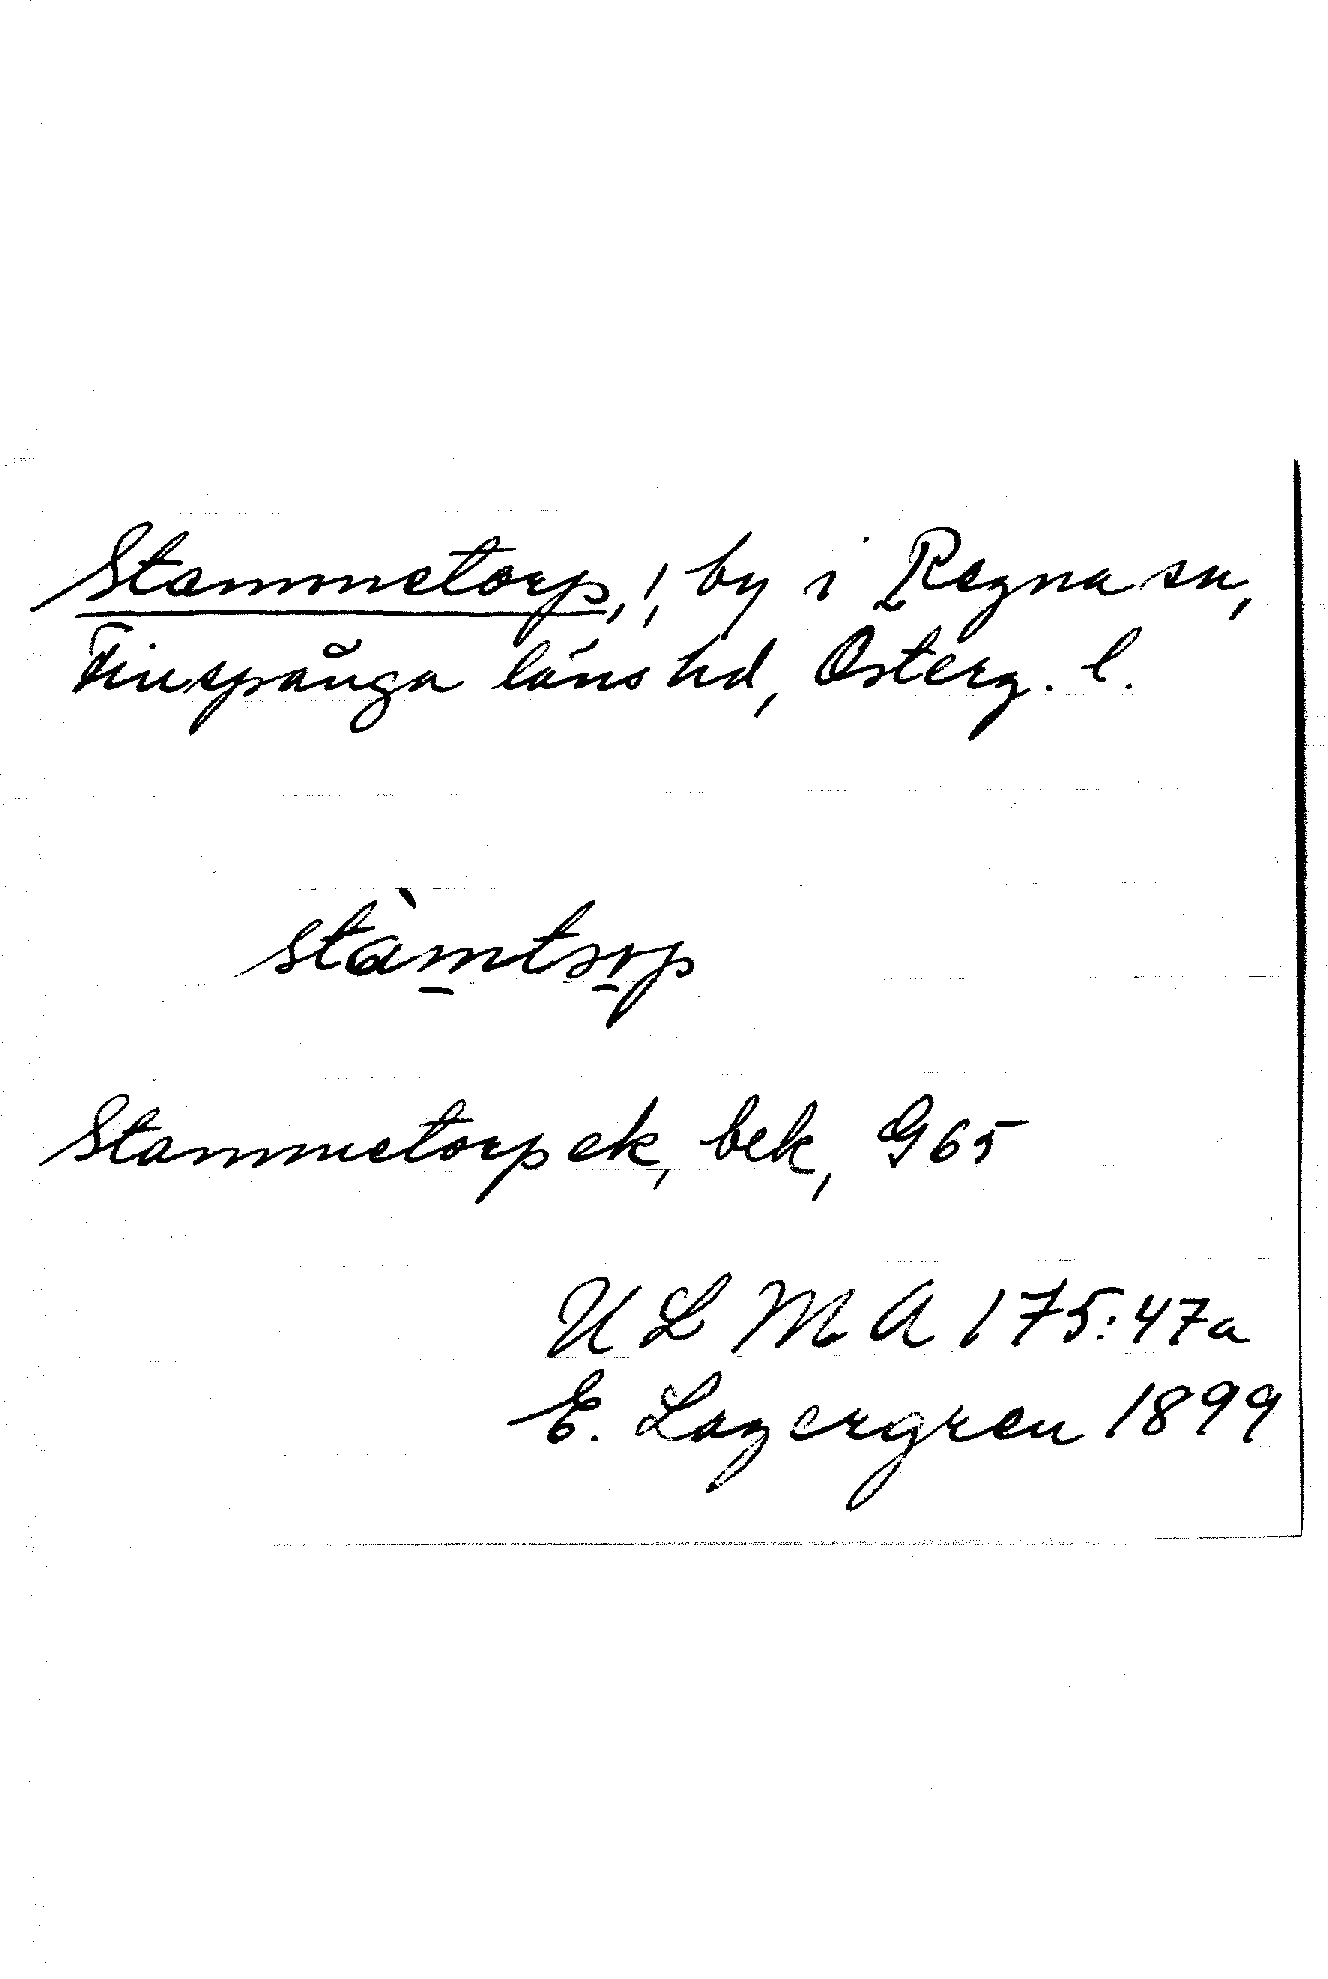 Stammetorp, !, by i Regna sn,
Finspånga läns hd, Österg. l.
stàm̲tɔr̲p
Stammetorp ek, bek, G65
ULMA 175:47a
E. Lagergren 1899